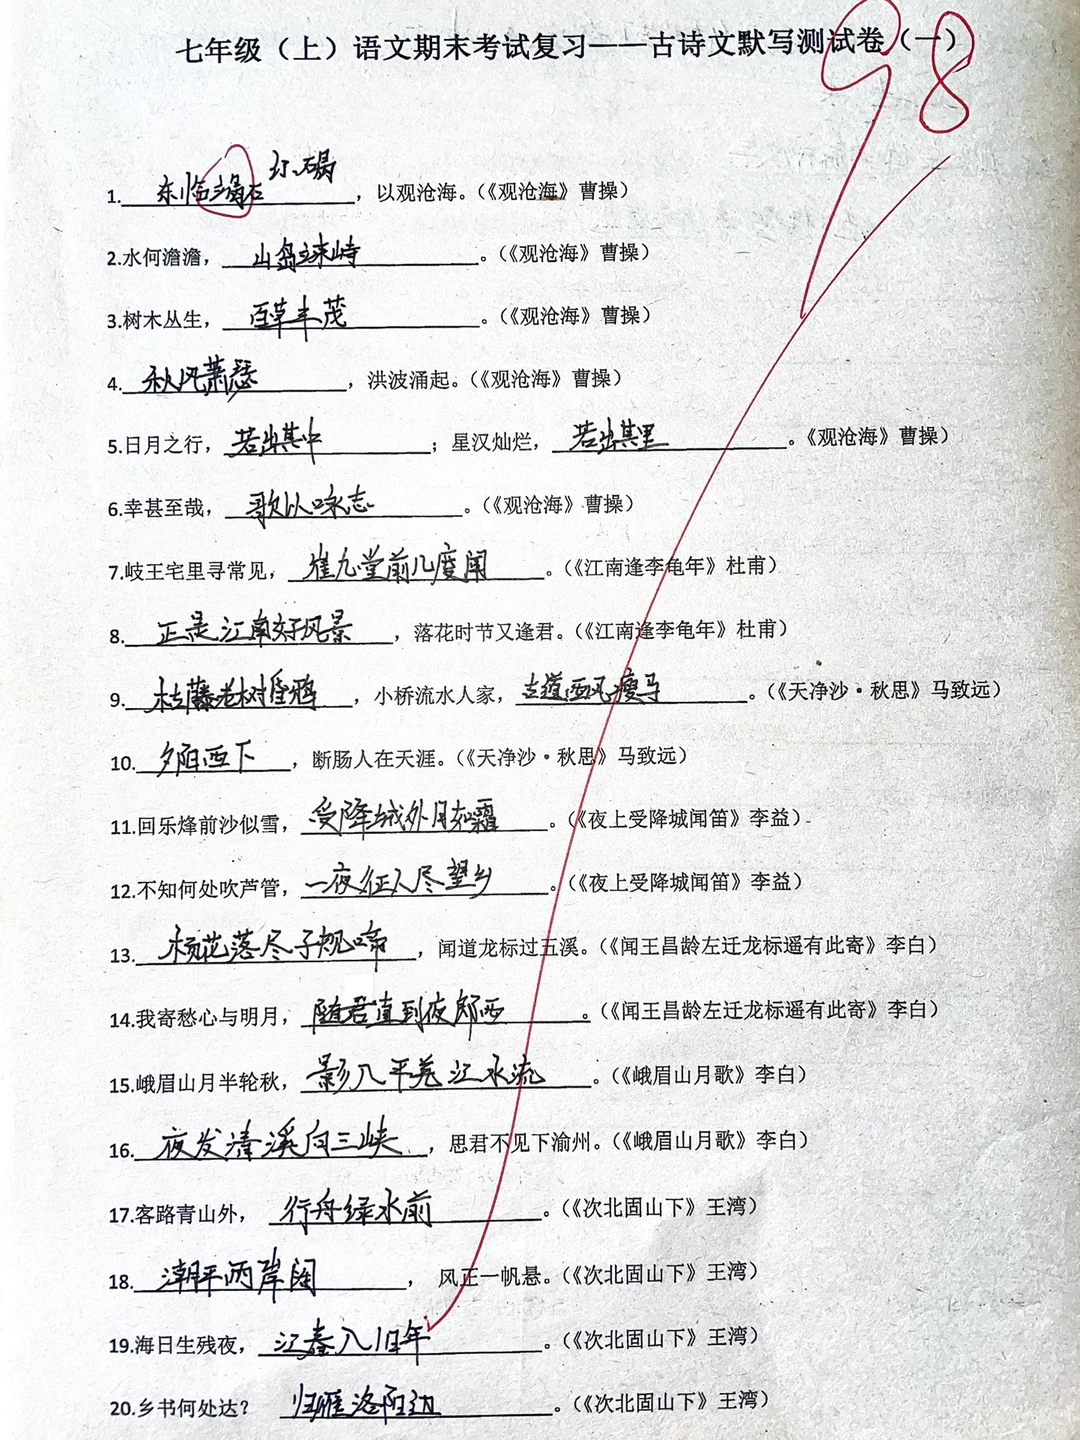 七年级（上）语文期末考试复习——古诗文默写测试卷（一）
98
碣
1.东临碣石，以观沧海。（《观沧海》曹操）
2.水何澹澹，山岛竦峙。（《观沧海》曹操）
3.树木丛生，百草丰茂。（《观沧海》曹操）
4.秋风萧瑟，洪波涌起。（《观沧海》曹操）
5.日月之行，若出其中；星汉灿烂，若出其里。《观沧海》曹操）
6.幸甚至哉，歌以咏志。（《观沧海》曹操）
7.岐王宅里寻常见，崔九堂前几度闻。（《江南逢李龟年》杜甫）
8.正是江南好风景，落花时节又逢君。（《江南逢李龟年》杜甫）
9.枯藤老树昏鸦，小桥流水人家，古道西风瘦马。（《天净沙·秋思》马致远）
10.夕阳西下，断肠人在天涯。（《天净沙·秋思》马致远）
11.回乐烽前沙似雪，受降城外月如霜。（《夜上受降城闻笛》李益）
12.不知何处吹芦管，一夜征人尽望乡。（《夜上受降城闻笛》李益）
13.杨花落尽子规啼，闻道龙标过五溪。（《闻王昌龄左迁龙标遥有此寄》李白）
14.我寄愁心与明月，随君直到夜郎西。（《闻王昌龄左迁龙标遥有此寄》李白）
15.峨眉山月半轮秋，影入平羌江水流。（《峨眉山月歌》李白）
16.夜发清溪向三峡，思君不见下渝州。（《峨眉山月歌》李白）
17.客路青山外，行舟绿水前。（《次北固山下》王湾）
18.潮平两岸阔，风正一帆悬。（《次北固山下》王湾）
19.海日生残夜，江春入旧年。（《次北固山下》王湾）
20.乡书何处达？归雁洛阳边。（《次北固山下》王湾）